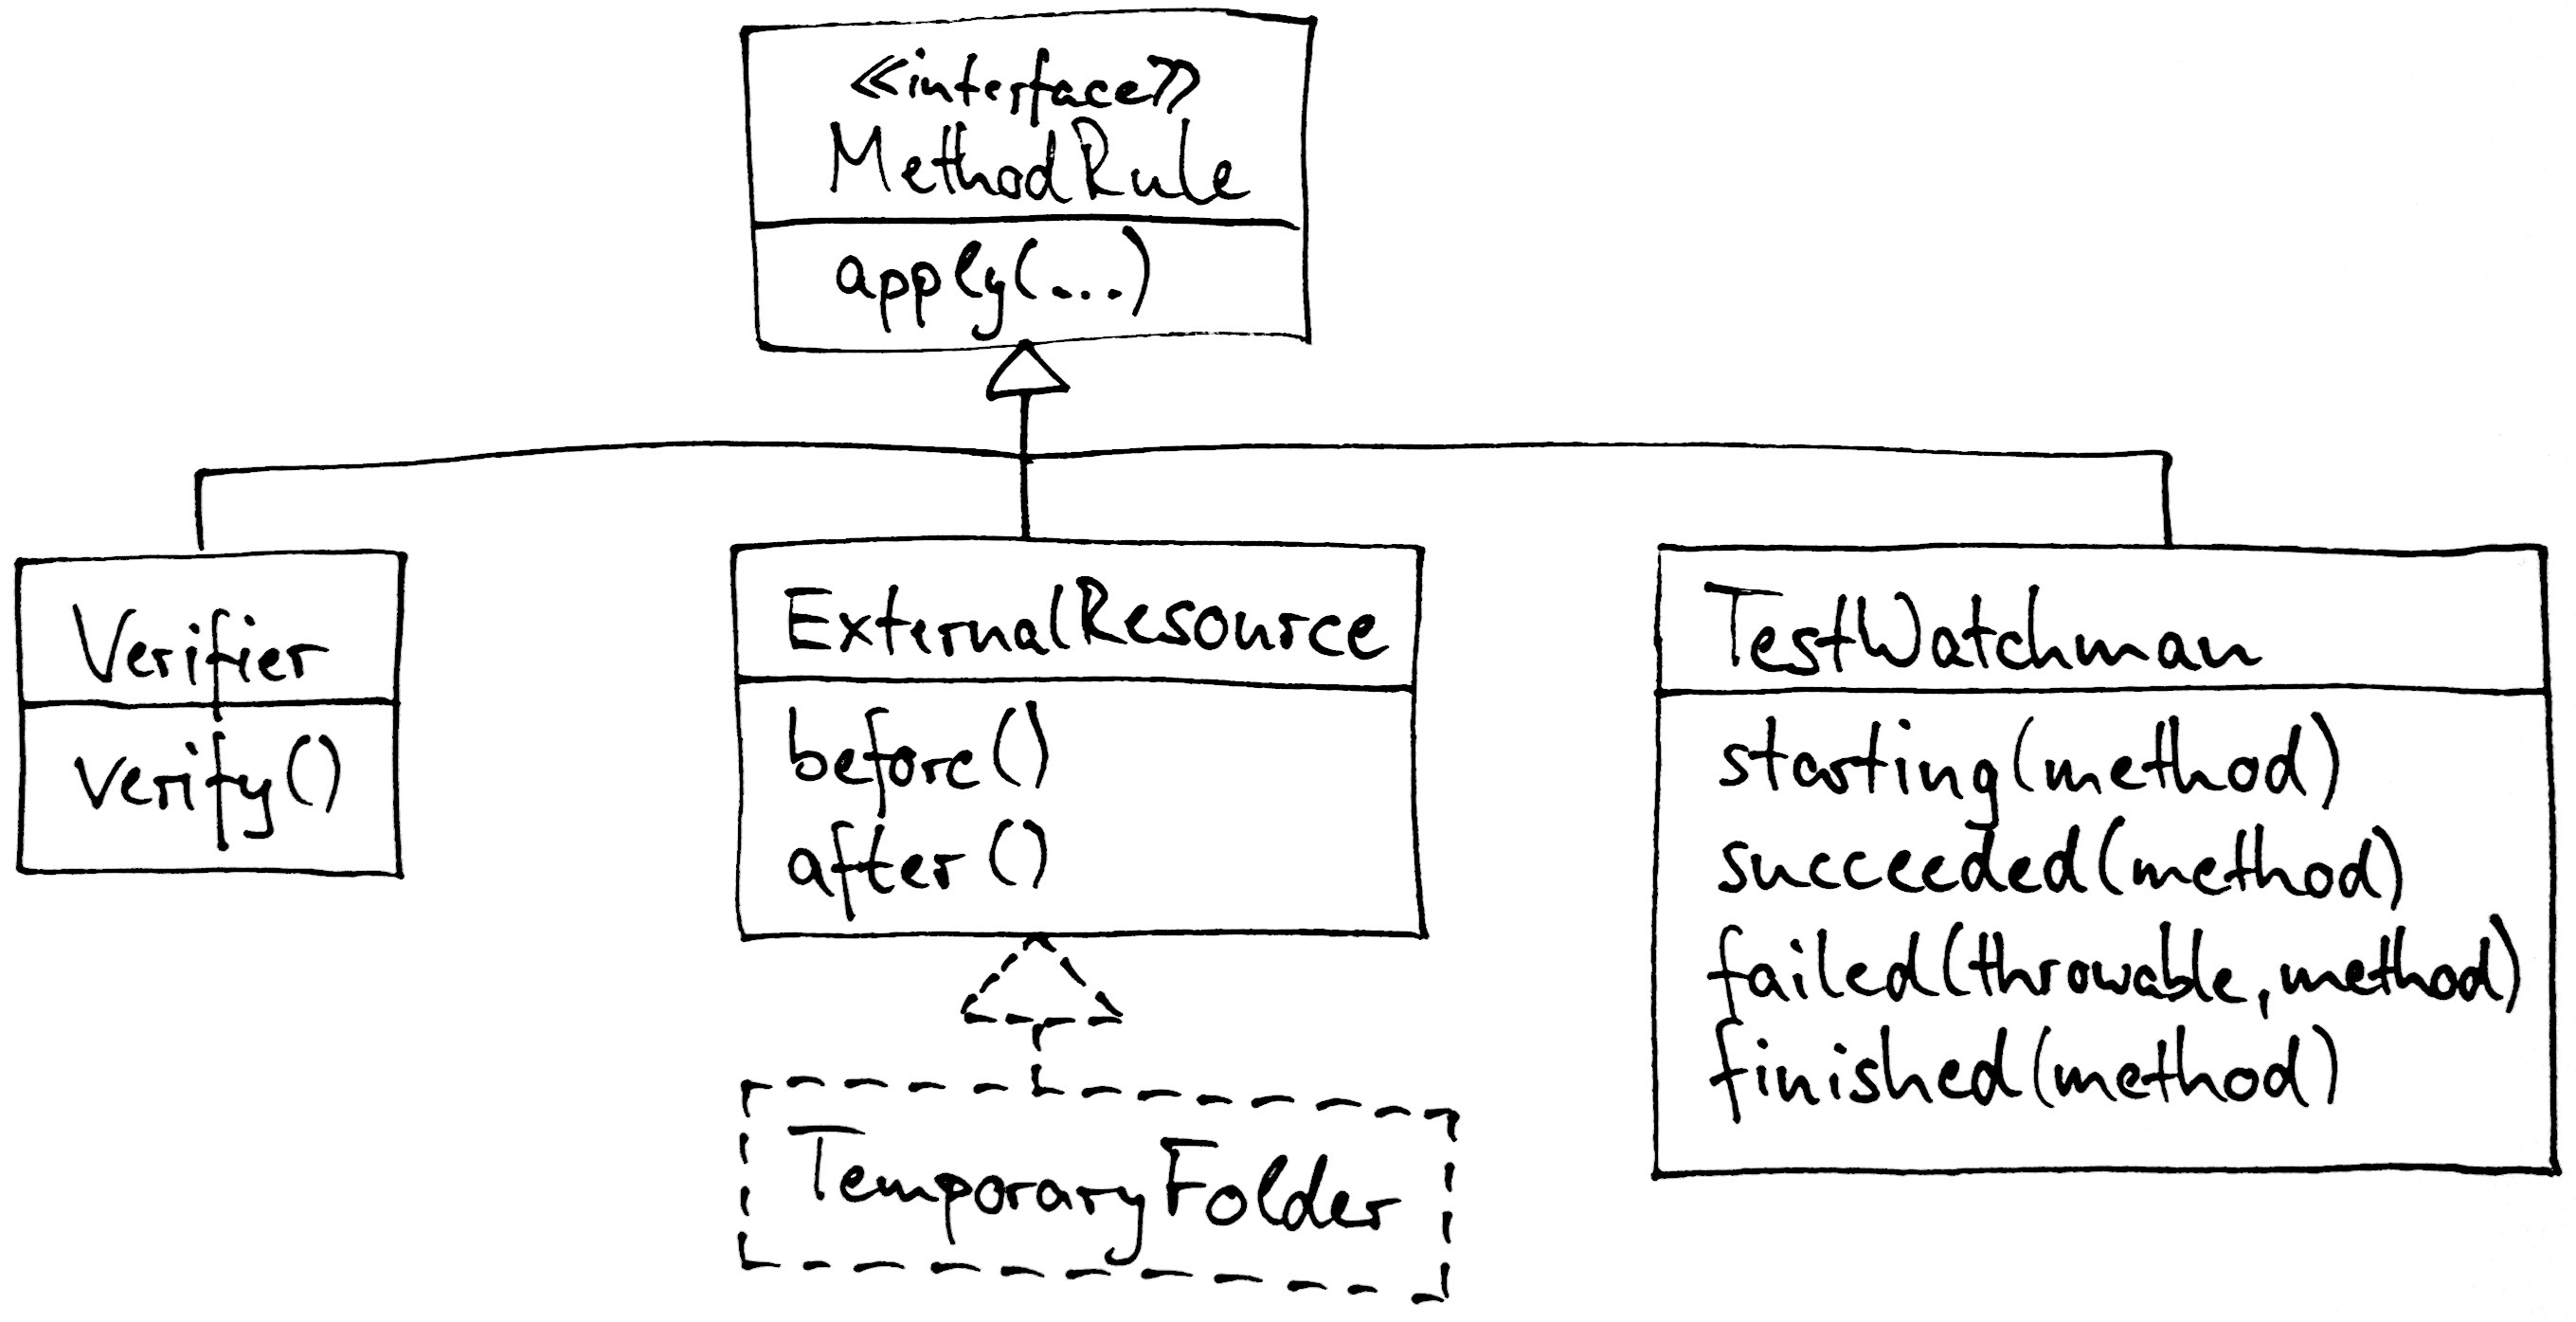 ≪interface≫
MethodRule
apply(...)
Verifier
verify()
ExternalResource
before()
after()
TestWatchman
starting(method)
succeeded(method)
failed(throwable, method)
finished(method)
TemporaryFolder